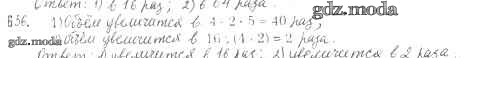 Ответ: 1) в 16 раз; 2) в 64 раза.
gdz.moda
636. 1) Объём увеличится в 4 · 2 · 5 = 40 раз;
gdz.moda
Объём увеличится в 16 : (4 · 2) = 2 раза.
Ответ: 1) увеличится в 16 раз; 2) увеличится в 2 раза.